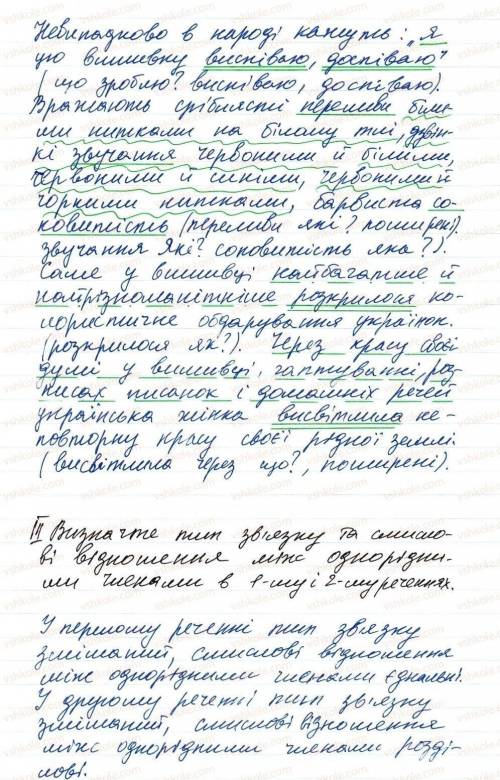 Невипадково в народі кажуть: „Я
цю вишивку виспіваю, доспіваю"
(що зроблю? виспіваю, доспіваю).
Вражають сріблясті переливи біли-
ми нитками на білому тлі, дзвін-
кі звучання червоними й білими,
червоними й синіми, червоними й
чорними нитками, барвиста со-
ковитість (переливи які? поширені).
звучання які? соковитість яка?).
Саме у вишивці найбагатше й
найрізноманітніше розкрилося ко-
лористичне обдарування українок.
(розкрилося як?). Через красу своєї
душі у вишивці, гаптуванні, роз-
писах писанок і домашніх речей
українська жінка висвітлила не-
повторну красу своєї рідної землі
(висвітлила через що?, поширені).
III Визначте тип зв'язку та смисло-
ві відношення між однорідни-
ми членами в 1-му і 2-му реченнях.
У першому реченні тип зв'язку
змішаний, смислові відношення
між однорідними членами єднальні.
У другому реченні тип зв'язку
змішаний, смислові відношення
між однорідними членами розді-
лові.